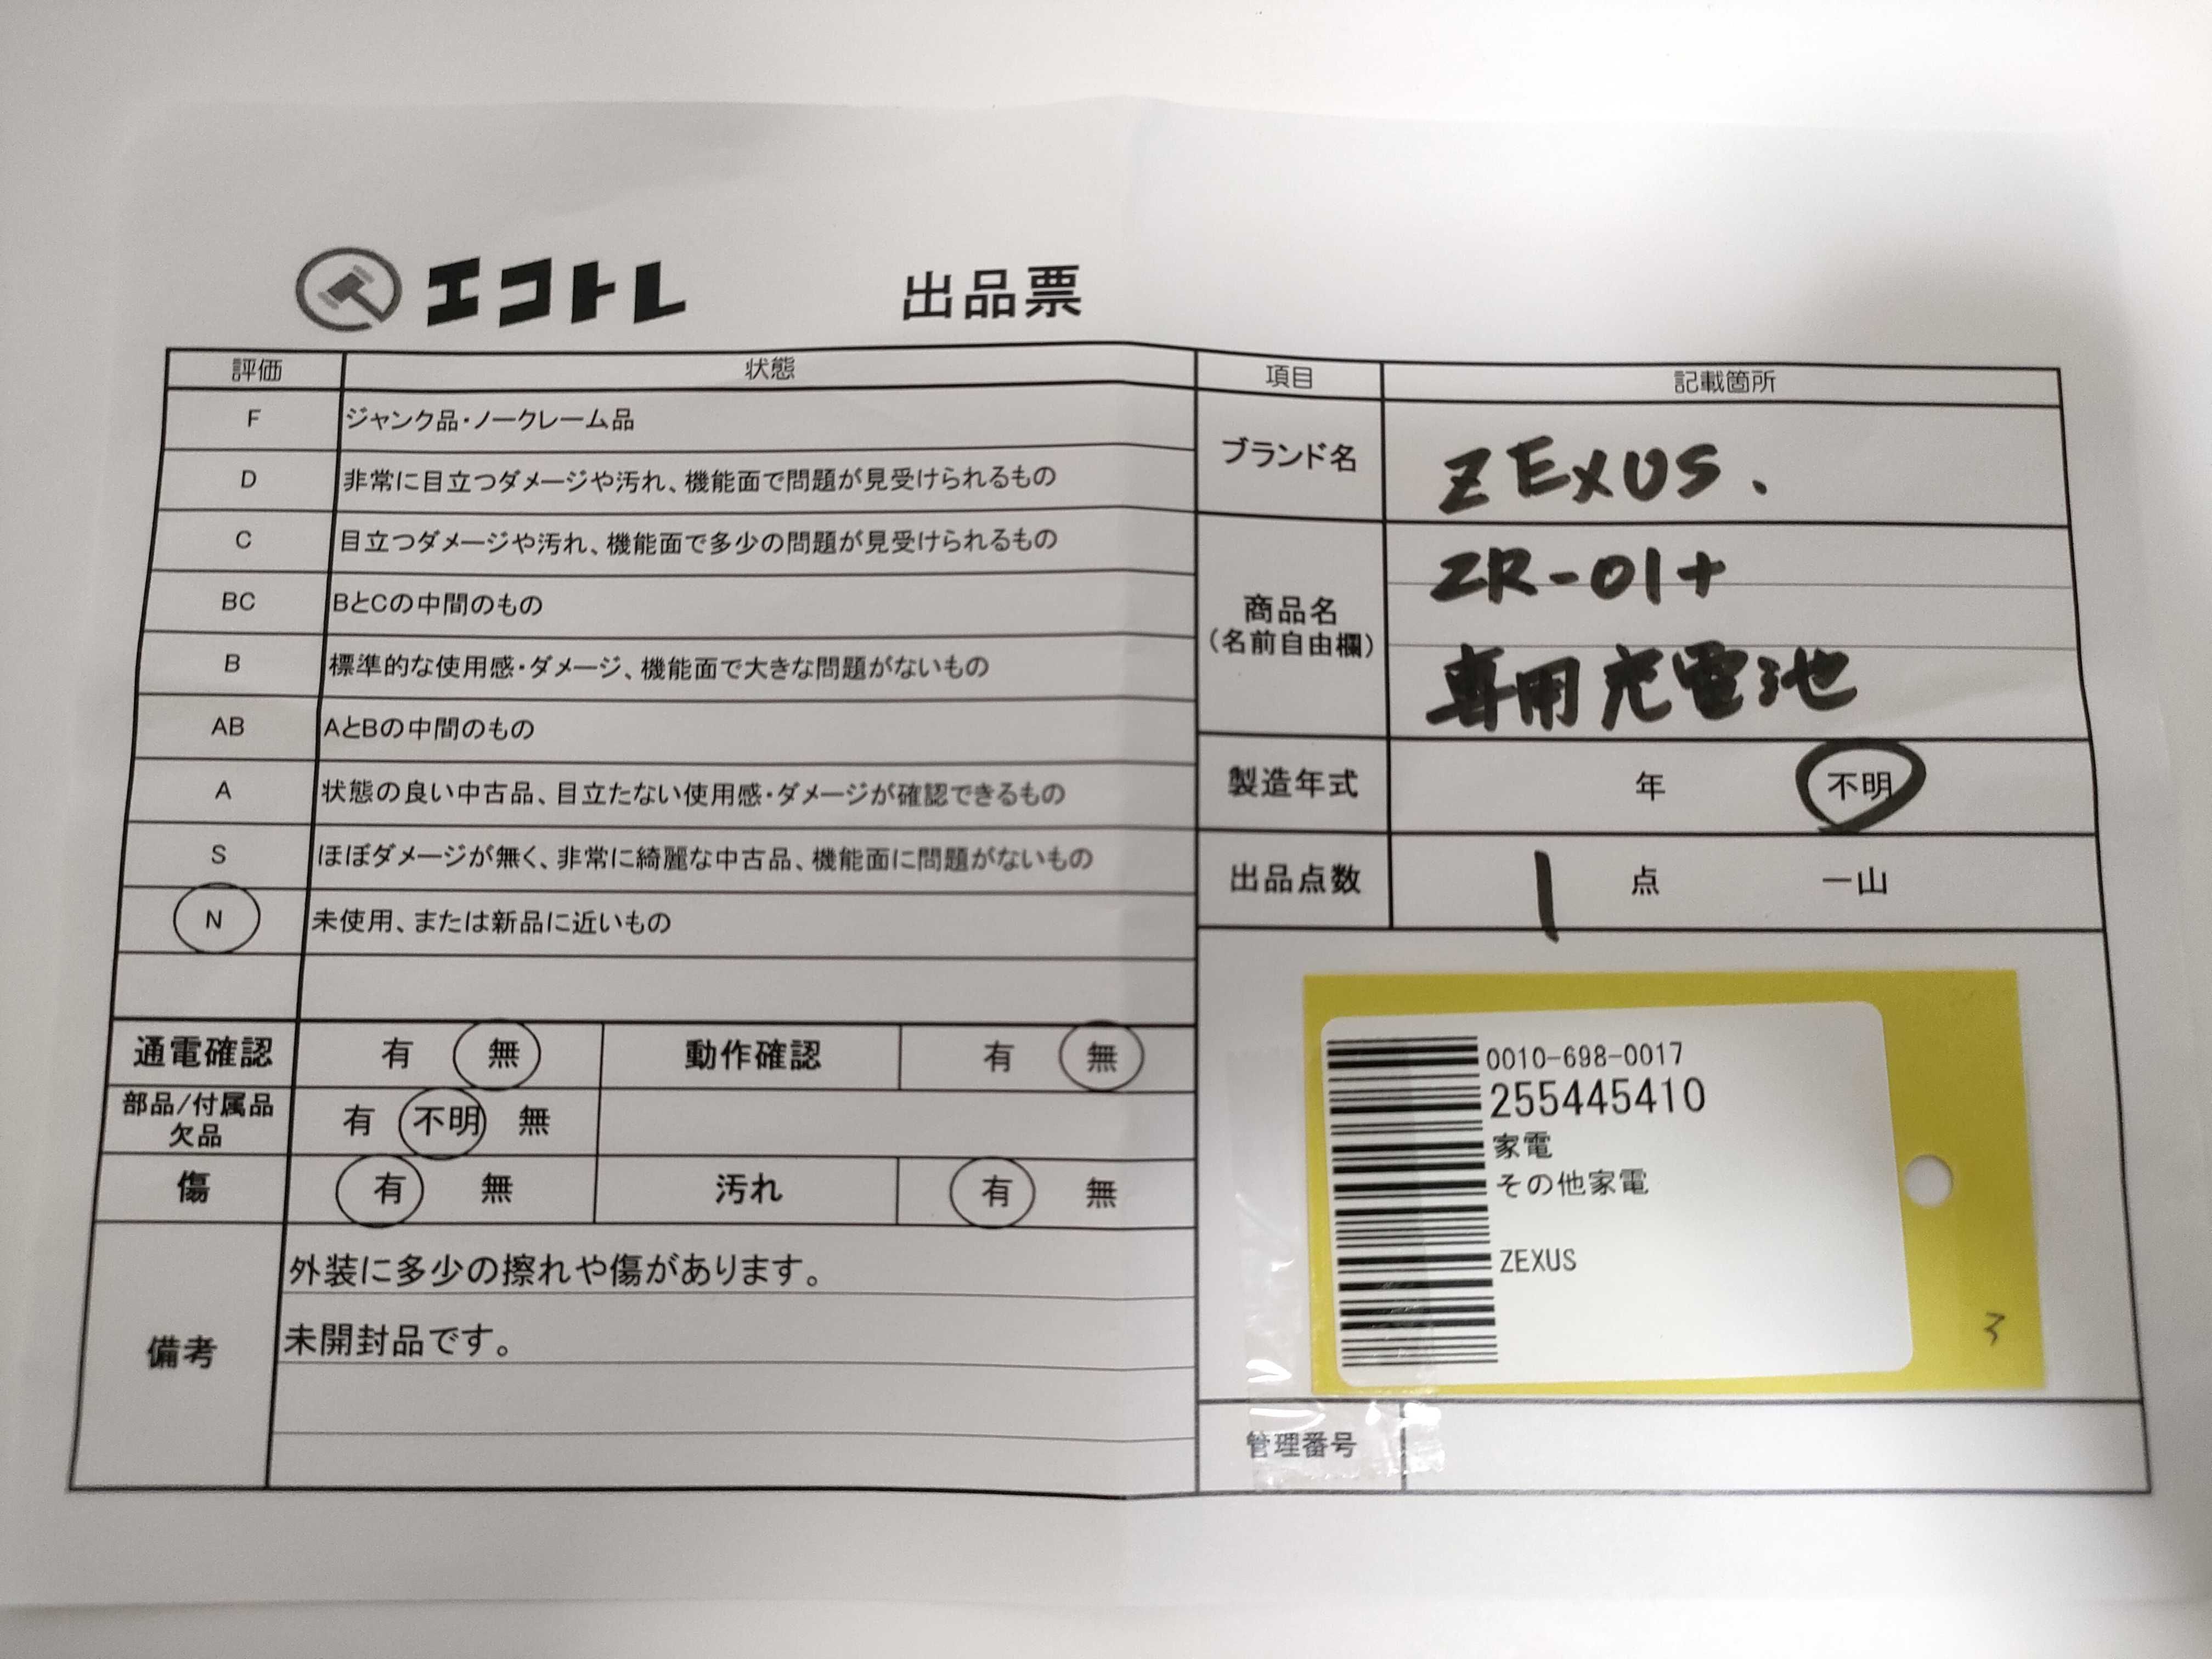 エコトレ 出品票
評価 状態
F ジャンク品・ノークレーム品
D 非常に目立つダメージや汚れ、機能面で問題が見受けられるもの
C 目立つダメージや汚れ、機能面で多少の問題が見受けられるもの
BC BとCの中間のもの
B 標準的な使用感・ダメージ、機能面で大きな問題がないもの
AB AとBの中間のもの
A 状態の良い中古品、目立たない使用感・ダメージが確認できるもの
S ほぼダメージが無く、非常に綺麗な中古品、機能面に問題がないもの
N 未使用、または新品に近いもの
通電確認 有 無 動作確認 有 無
部品/付属品
欠品 有 不明 無
傷 有 無 汚れ 有 無
備考
外装に多少の擦れや傷があります。
未開封品です。
項目 記載箇所
ブランド名 ZEXUS.
商品名
(名前自由欄)
ZR-01+
専用充電池
製造年式 年 不明
出品点数 1 点 一山
0010-698-0017
255445410
家電
その他家電
ZEXUS
3
管理番号